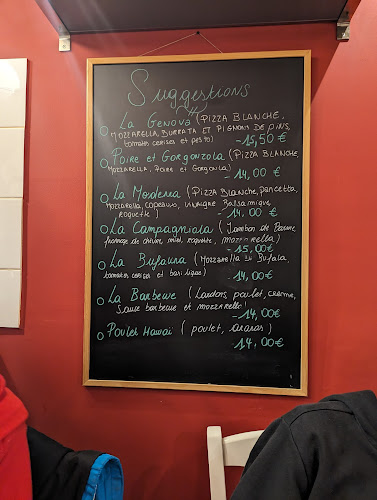 Suggestions
La Genova (PIZZA BLANCHE,
MOZZARELLA, BURRATA ET PIGNON DE PINS,
tomates cerises et pesto) - 15,50 €
Poire et Gorgonzola (PIZZA BLANCHE,
MOZZARELLA, Poire et Gorgonzola)
- 14,00 €
La Modena (PIZZA Blanche, pancetta,
Mozzarella, copeaux, vinaigre Balsamique,
roquette) - 14,00 €
La Campagniola (Jambon de Parme,
fromage de chèvre, miel, roquette, mozzarella)
- 15,00 €
La Bufalina (Mozzarella Di Bufala,
tomates cerises et basilique)
- 14,00 €
La Barbecue (Lardons, poulet, creme,
Sauce barbecue et mozzarella)
- 14,00 €
Poulet Hawaï (poulet, ananas)
14,00 €